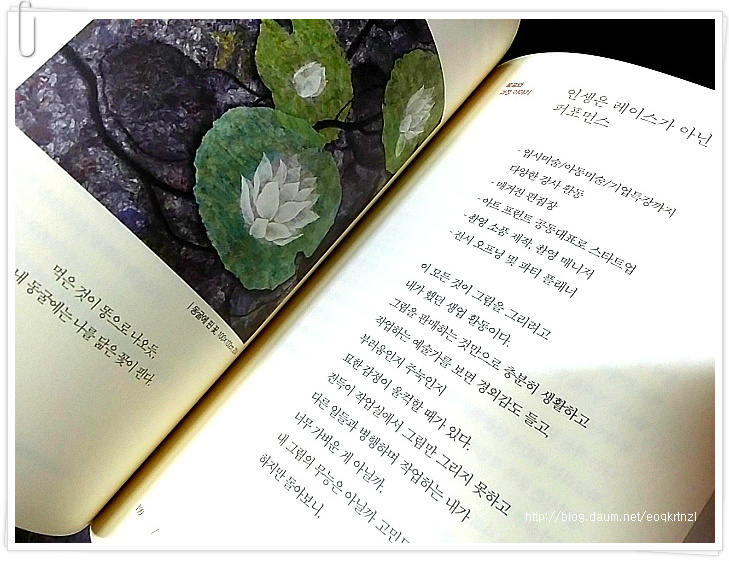 먹은 것이 똥으로 나오듯,
내 동굴에는 나를 닮은 꽃이 핀다.
인생은 레이스가 아닌
퍼포먼스
- 입시미술/아동미술/기업특강까지
다양한 강사 활동
- 매거진 편집장
- 아트 프린트 공동대표로 스타트업
- 촬영 소품 제작, 촬영 매니저
- 전시 오프닝 및 파티 플래너
이 모든 것이 그림을 그리려고
내가 했던 생업 활동이다.
그림을 판매하는 것만으로 충분히 생활하고
작업하는 예술가를 보면 경외감도 들고,
부러움인지 주눅인지
묘한 감정이 울컥할 때가 있다.
진득이 작업실에서 그림만 그리지 못하고
다른 일들과 병행하며 작업하는 내가
너무 가벼운 게 아닐까,
내 그림의 무능은 아닐까
하지만 돌아보니,
http://blog.daum.net/eoqkrtnzl